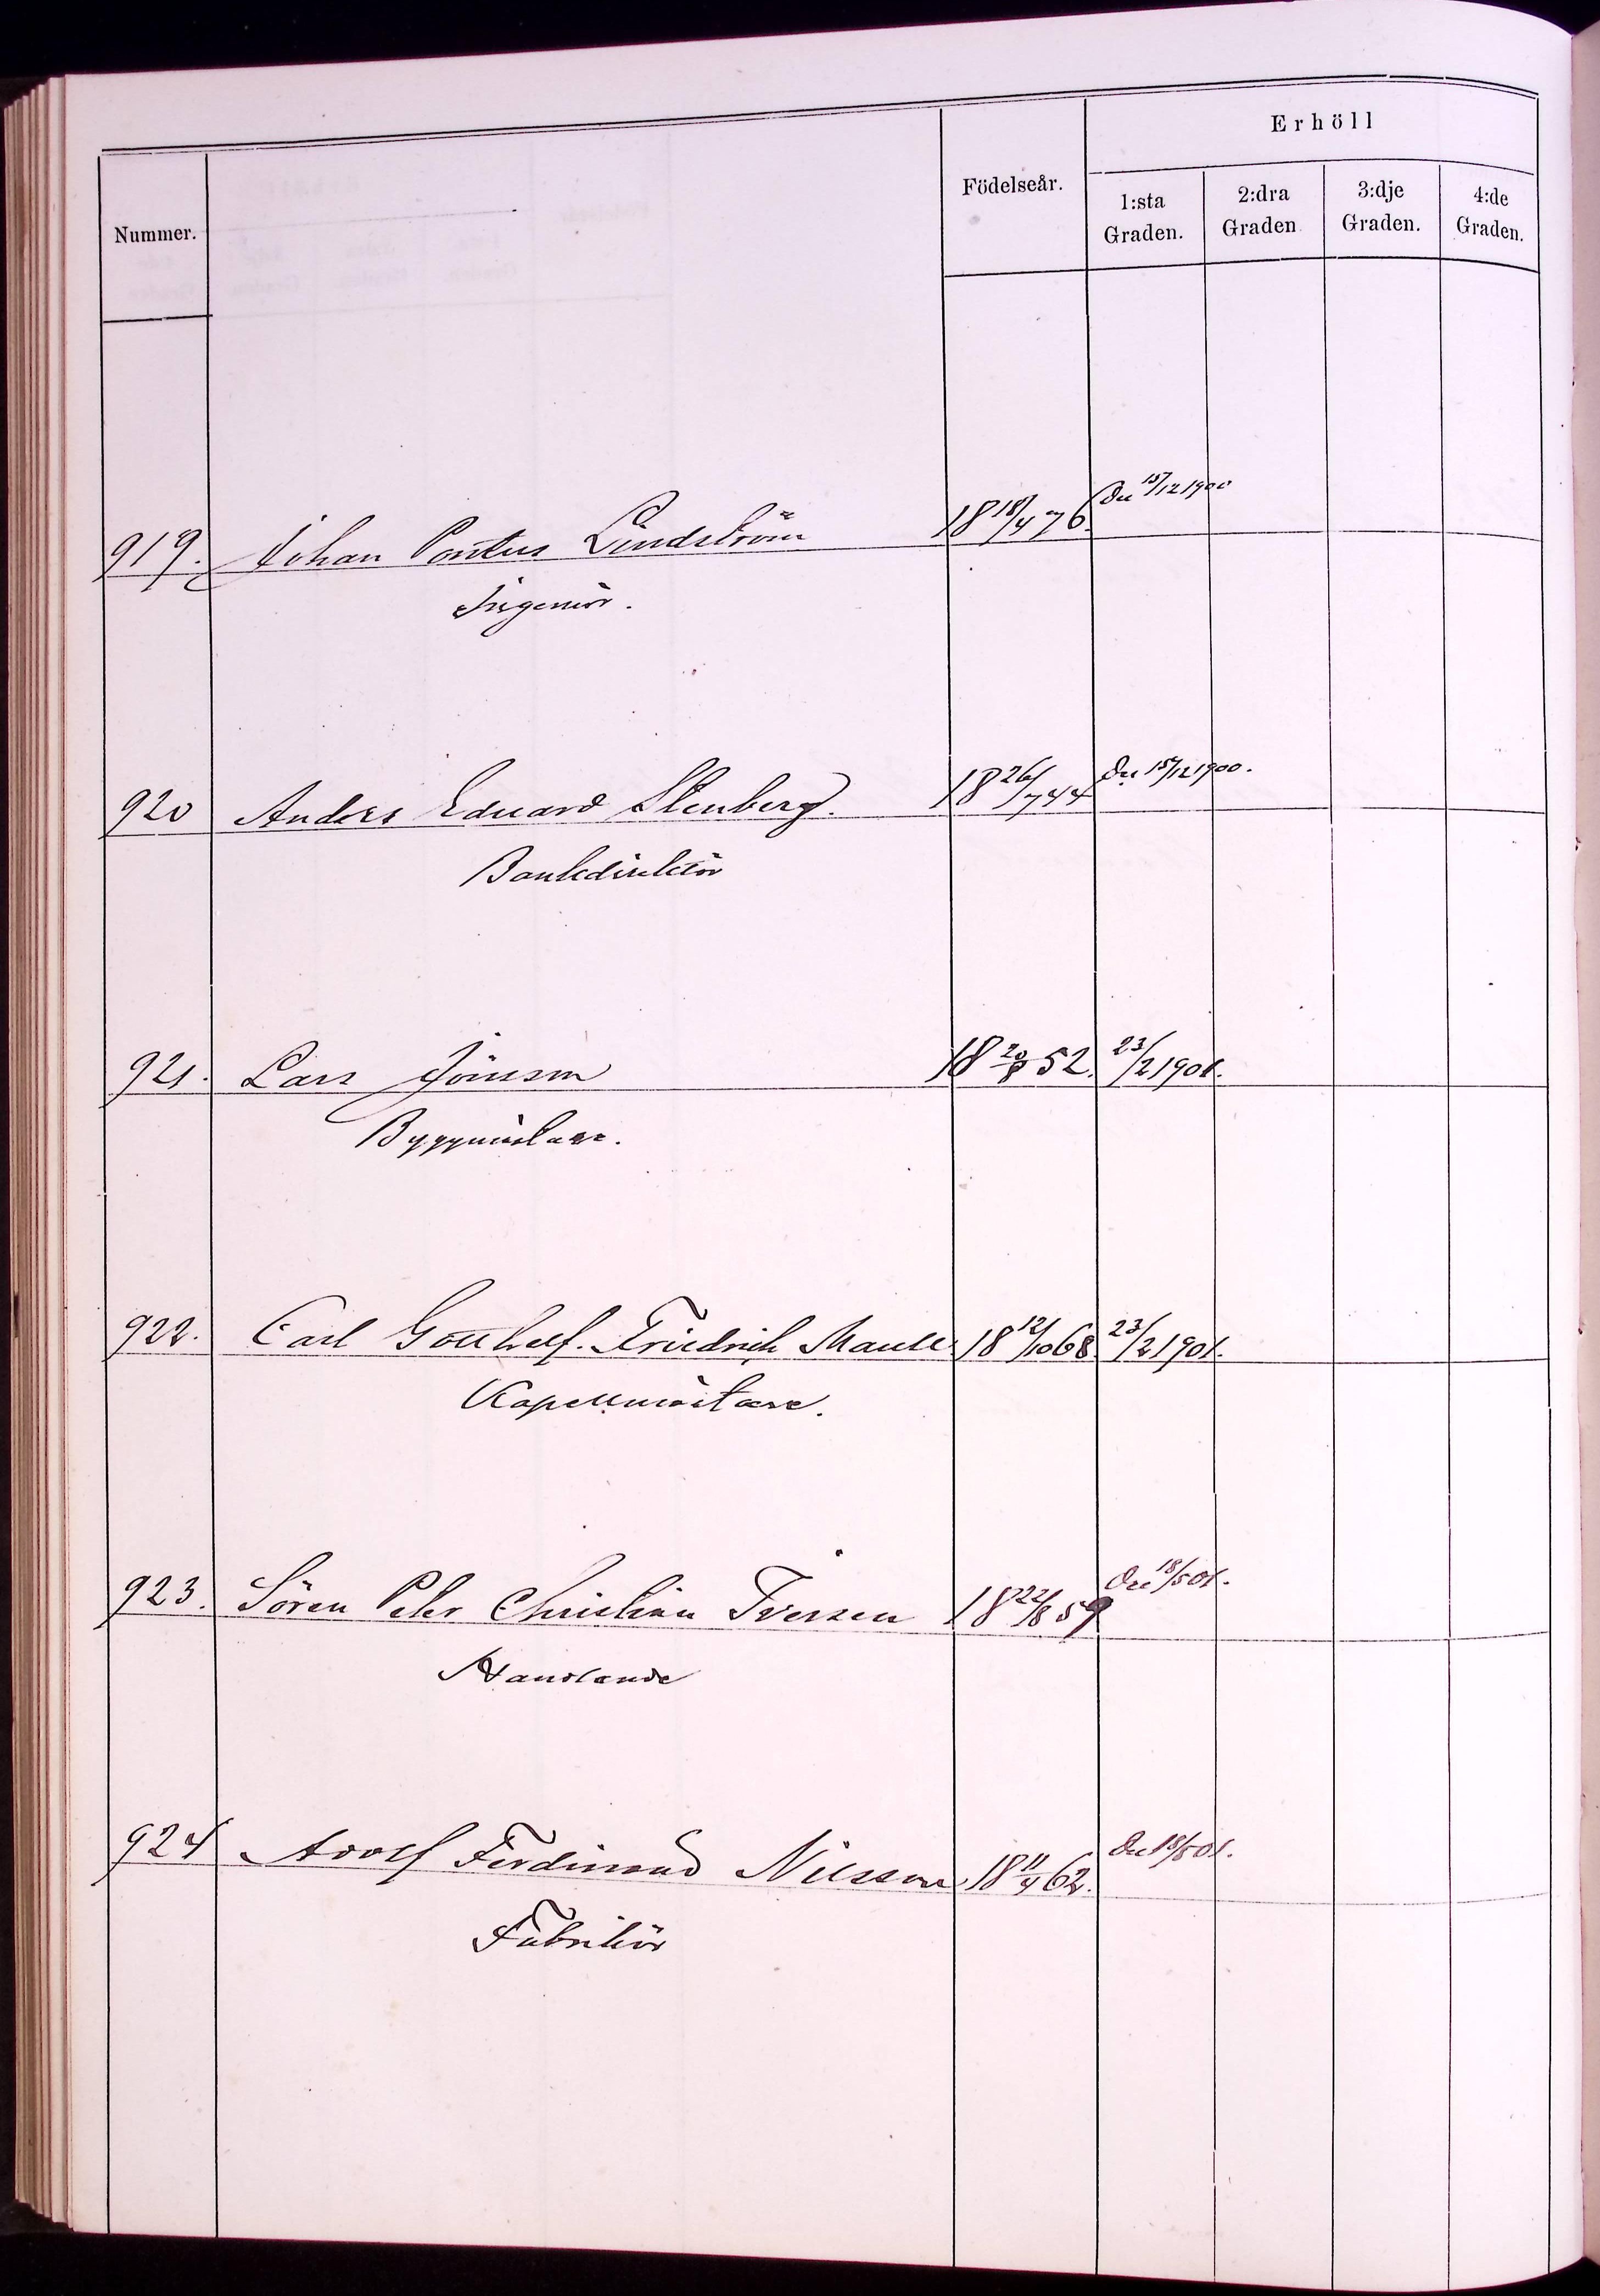 Erhöll
Födelseår.
Nummer.
1:sta Graden.
2:dra Graden
3:dje Graden.
4:de Graden.
919. Johan Pontus Lindström 18 18/4 76. Den 15/12 1900
Ingeniör.
920 Anders Eduard Stenberg. 18 26/7 44 Den 15/12 1900.
Bankdirektör
921. Lars Jönsson 18 20/8 52. 23/2 1901.
Byggmästare.
922. Carl Gotthelf. Friedrich Maull 18 12/10 68. 23/2 1901.
Kapellmästare.
923. Sören Peter Christian Iversen 18 22/8 59 Den 18/5 01.
Handlande
924 Adolf Ferdinand Nilsson. 18 11/4 62. Den 18/5 01.
Fabrikör